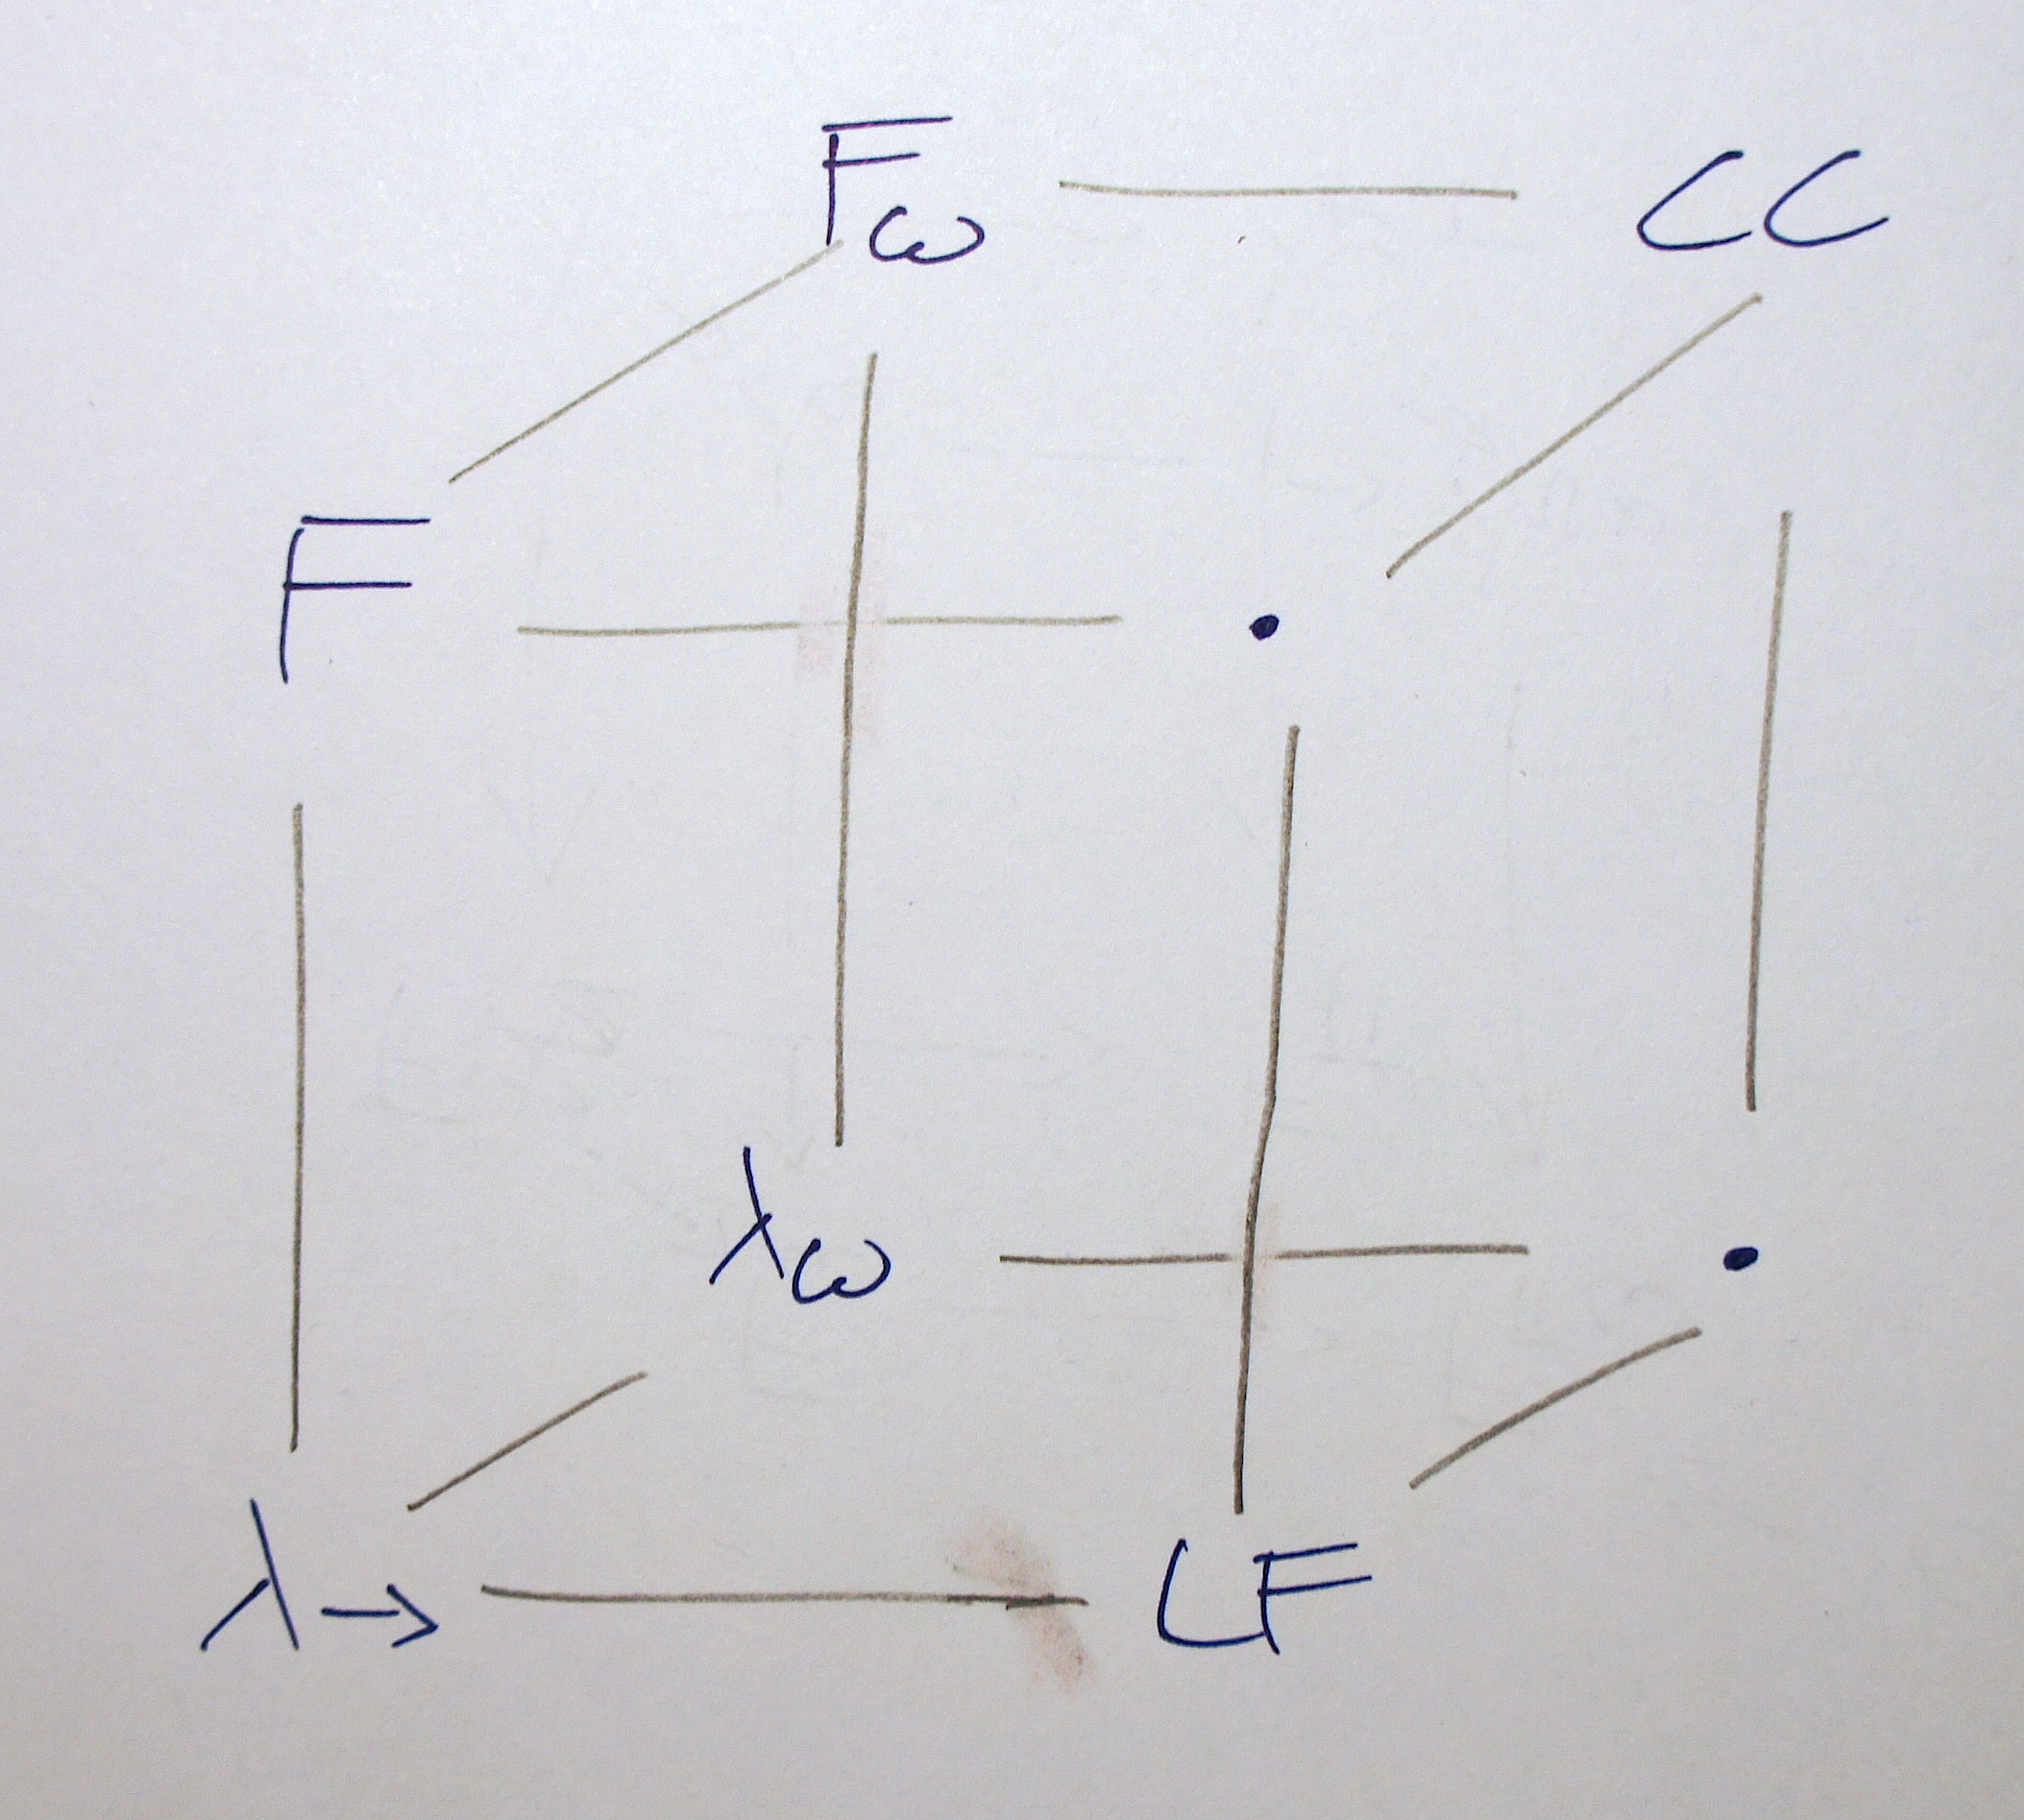 Fω CC
F
λω
λ→ LF